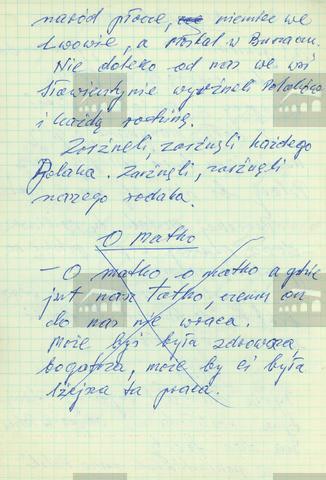 naród płacze, niemiec we
Lwowie, a Moskal w Buczaczu.
Nie daleko od nas we wsi
wyrżneli Polaków
i każdą rodzinę.
Zarżneli, zarżnęli każdego
Polaka. Zarżnęli, zarżnęli
naszego rodaka.
O matko
– O matko, o matko a gdzie
jest nasz tatko, czemu on
do nas nie wraca.
Może byś była zdrowsza,
bogatsza, może by ci była
lżejsza ta praca.